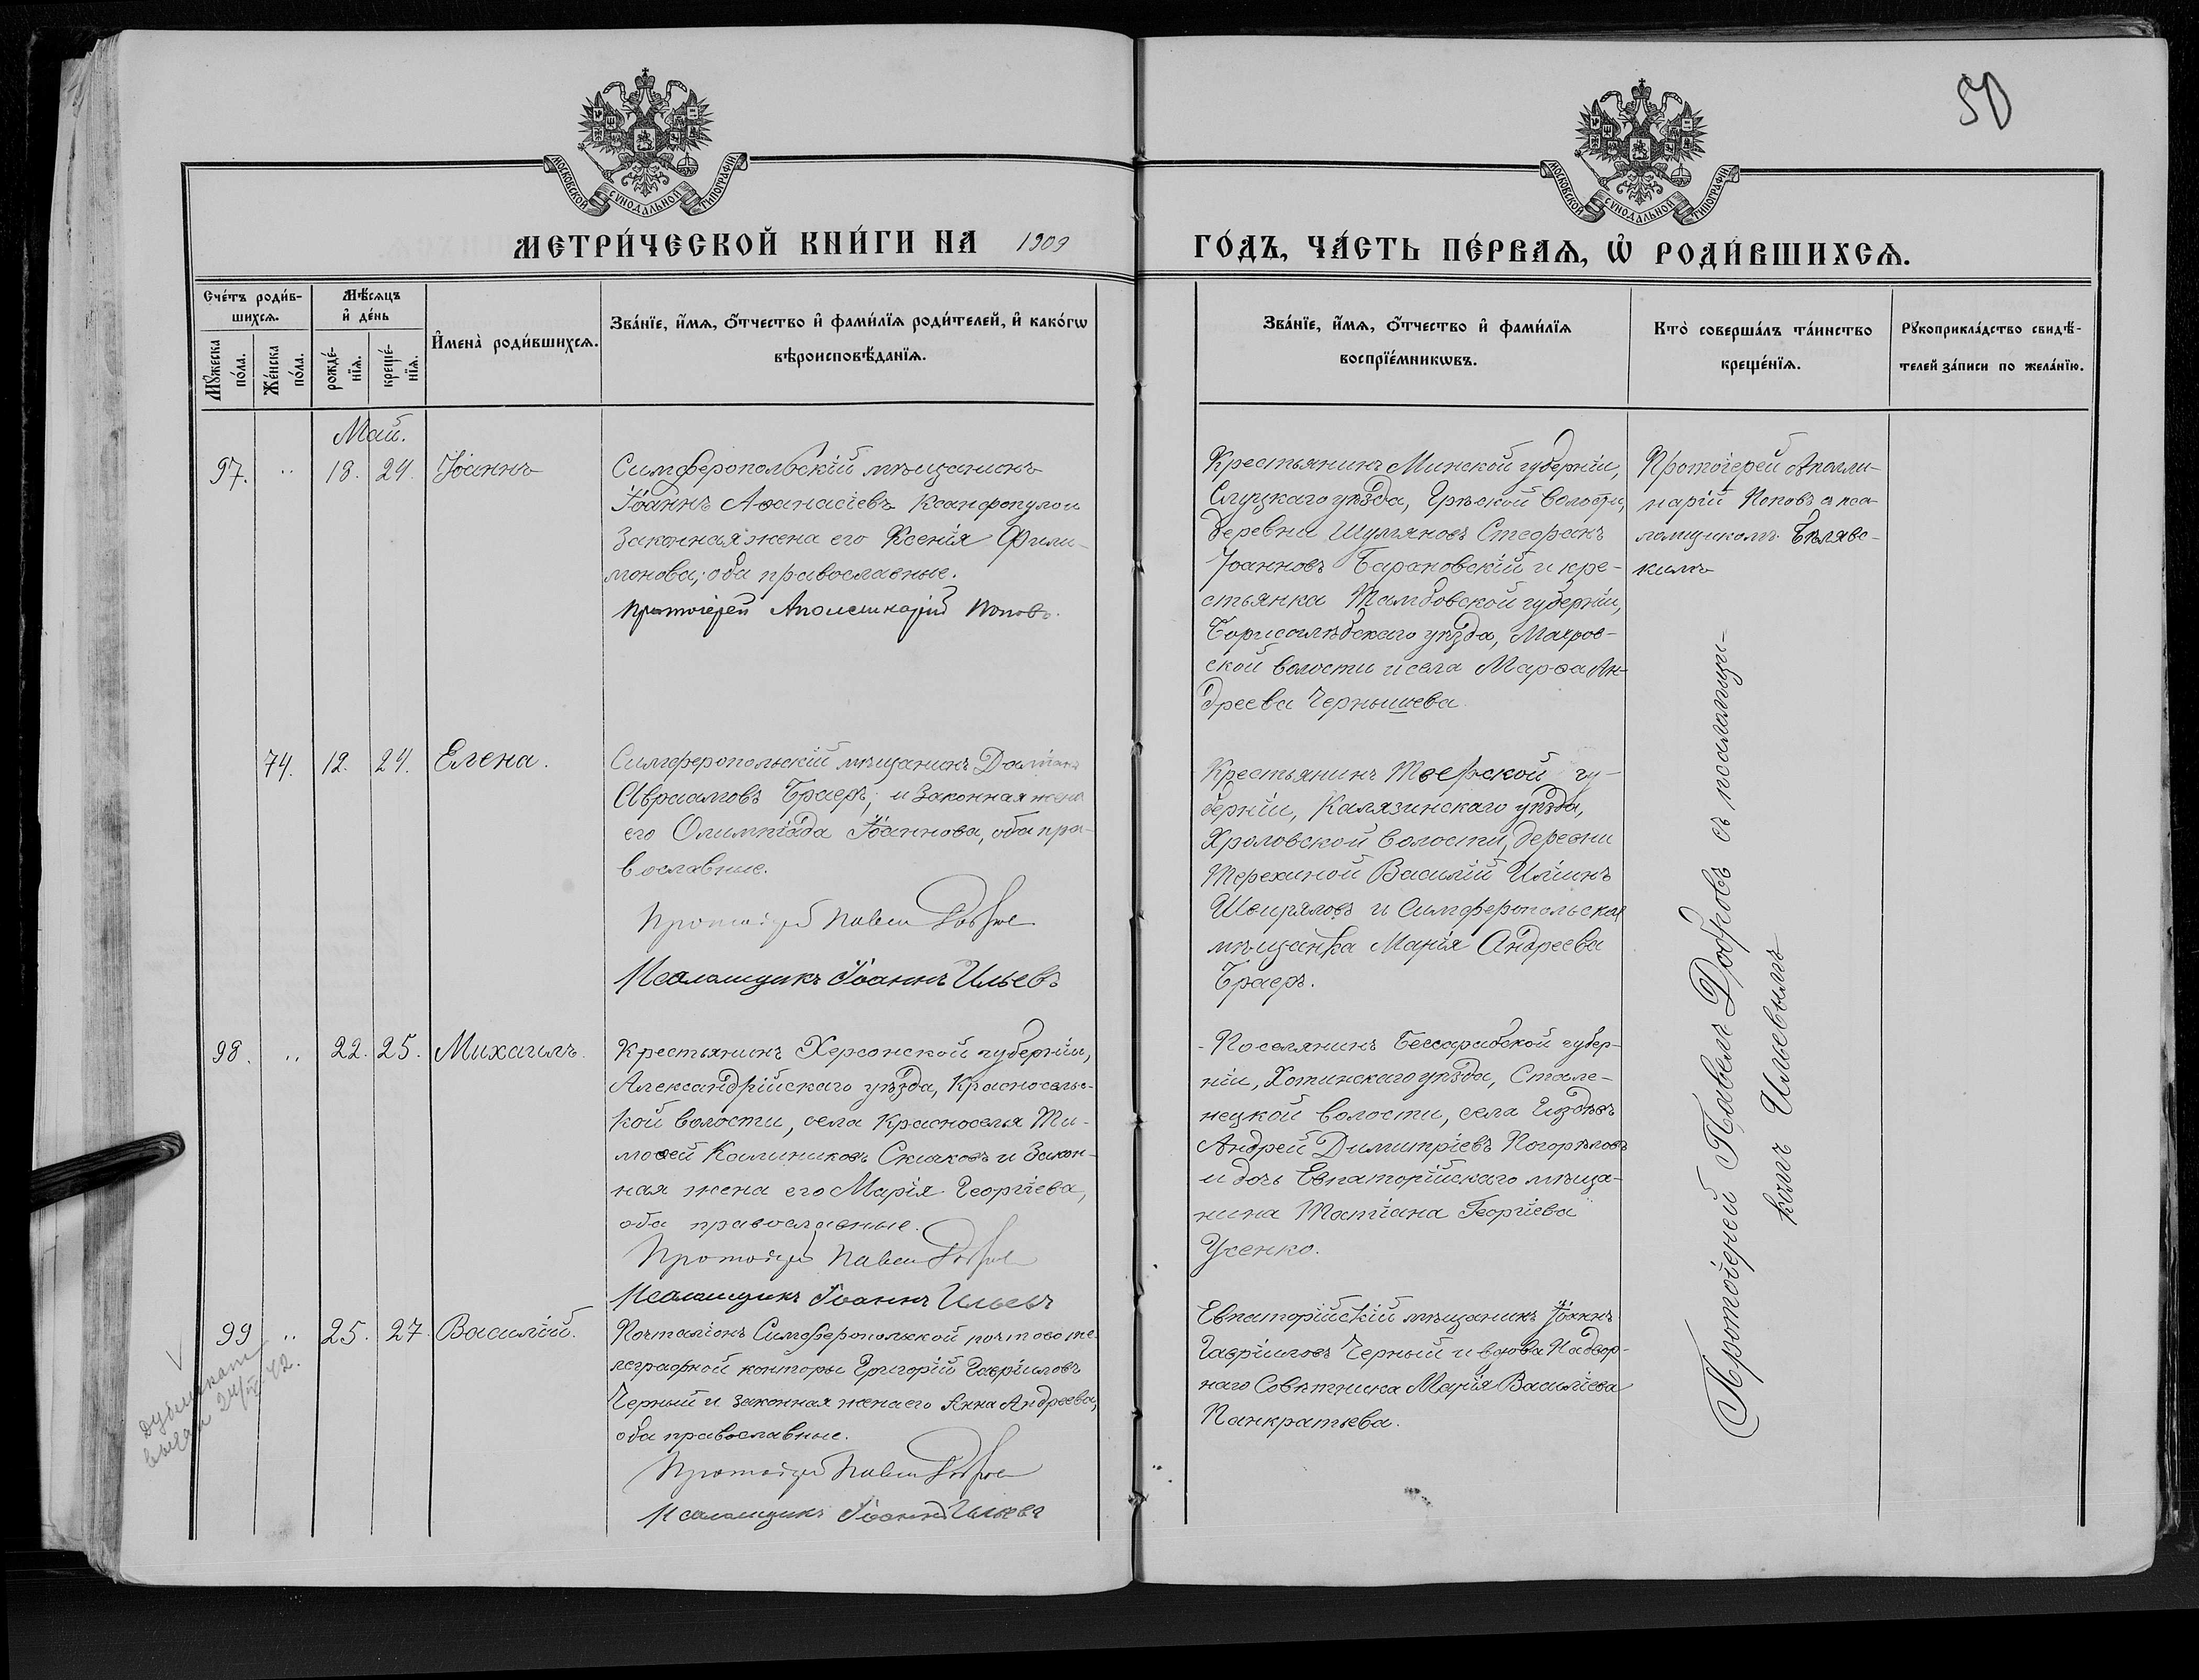 50
МОСКОВСКОЙ СѴНОДАЛЬНОЙ ТИПОГРАФІИ
МОСКОВСКОЙ СѴНОДАЛЬНОЙ ТИПОГРАФІИ
МЕТРИ́ЧЕСКОЙ КНИ́ГИ НА 1909 ГО́ДЪ, ЧА́СТЬ ПЕ́РВАѦ, Ѡ҆ РОДИ́ВШИХСѦ.
Сче́тъ роди́в-
шихсѧ.
Мꙋ́жеска по́ла.
Же́нска по́ла.
Мѣ́сѧцъ
и҆ де́нь
рожде́-
нїѧ.
креще́-
нїѧ.
И҆мена̀ роди́вшихсѧ.
Зва́нїе, и҆́мѧ, ѻ҆́тчество и҆ фами́лїѧ роди́телей, и҆ како́гѡ
вѣроисповѣ́данїѧ.
Зва́нїе, и҆́мѧ, ѻ҆́тчество и҆ фами́лїѧ
воспрїе́мникѡвъ.
Кто̀ соверша́лъ та́инство
креще́нїѧ.
Рꙋкоприкла́дство свидѣ́-
телей за́писи по жела́нїю.
Май.
97. " 18. 24. Іоаннъ
Симферопольскій мѣщанинъ
Іоаннъ Аѳанасіевъ Ксанфопулои
Законная жена его Ксенія Фили-
монова; оба православные.
Протоіерей Аполлинарій Поповъ.
Крестьянинъ Минской губерніи,
Слуцкаго уѣзда, Грѣской волости,
деревни Шулгяновъ Стефанъ
Іоанновъ Барановскій и кре-
стьянка Тамбовской губерніи,
Борисоглѣбскаго уѣзда, Махров-
ской волости и села Марѳа Ан-
дреева Чернышева.
Протоіерей Аполли-
нарій Поповъ с пса-
ломщикомъ Бѣлявс-
кимъ
74. 12. 24. Елена.
Симферопольскій мѣщанинъ
Авраамовъ Браеръ, и законная жена
его Олимпіада Іоаннова, оба пра-
вославные.
Протоіерей Павелъ Добровъ
Псаломщикъ Іоаннъ Ильевъ
Крестьянинъ Тверской гу-
берніи, Калязинскаго уѣзда,
Хроловской волости, деревни
Терехиной Василій Иліинъ
Швиряловъ и Симферопольская
мѣщанка Марія Андреева
Браеръ.
98. " 22. 25. Михаилъ.
Крестьянинъ Херсонской губерніи,
Александрійскаго уѣзда, Красносельс-
кой волости, села Красноселья Ти-
моѳей Калиниковъ Скляковъ и закон-
ная жена его Марія Георгіева,
оба православные.
Протоіерей Павелъ Добровъ
Псаломщикъ Іоаннъ Ильевъ
Поселянинъ Бессарабской губер-
ніи, Хотинскаго уѣзда, Стале-
нецкой волости, села
Андрей Димитріевъ Погорѣловъ
и дочь Евпаторійскаго мѣща-
нина Татіана Георгіева
Усенко.
99 " 25. 27. Василій.
Почталіонъ Симферопольской почтово те-
леграфной конторы Григорій Гавріиловъ
Черный и законная жена его Анна Андреева,
оба православные.
Протоіерей Павелъ Добровъ
Псаломщикъ Іоаннъ Ильевъ
Евпаторійскій мѣщанинъ Іоаннъ
Гавріиловъ Черный и вдова Надвор-
наго Совѣтника Марія Василіева
Панкратьева.
Протоіерей Павелъ Добровъ съ псаломщи-
комъ Ильевымъ
дубликат
выдан 24/IV 42.